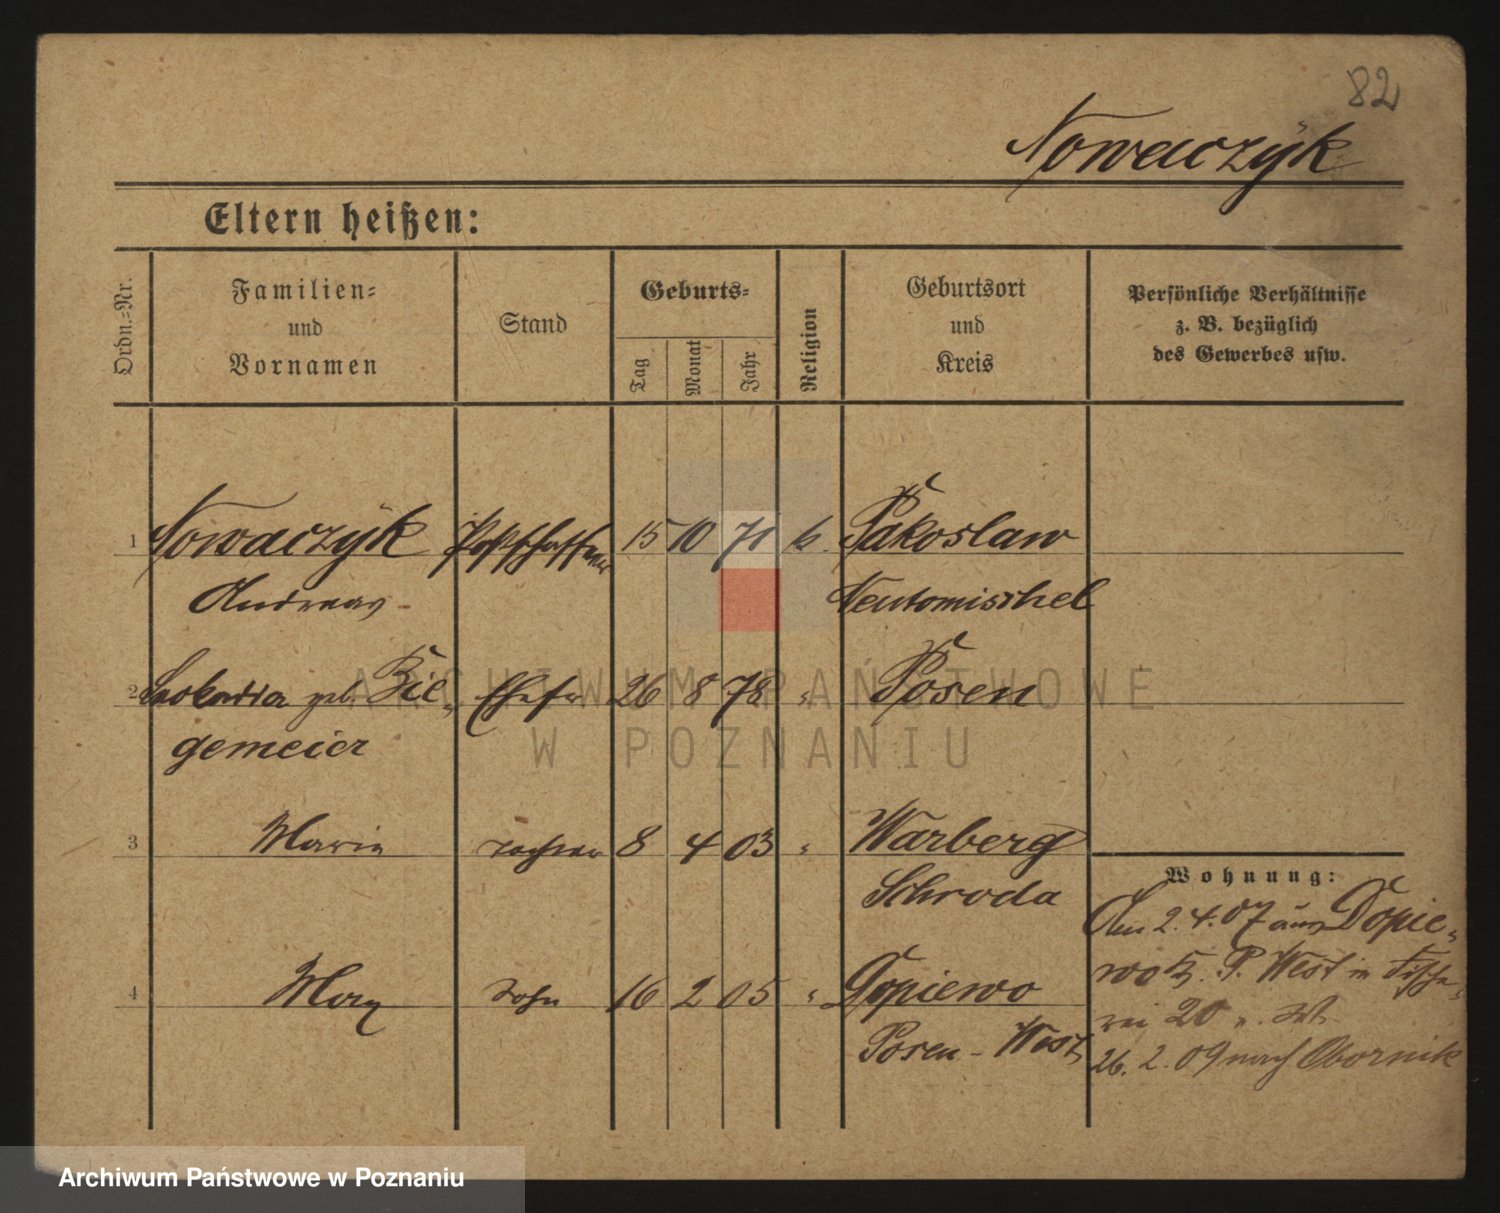 82
Nowaczyk
Eltern heißen:
Ordn.-Nr.
Familien-
und
Vornamen
Stand
Geburts-
Tag
Monat
Jahr
Religion
Geburtsort
und
Kreis
Persönliche Verhältnisse
z. B. bezüglich
des Gewerbes usw.
1 Nowaczyk Postschaffner 15 10 71 k. Pakoslaw
Andreas Neutomischel
2 Leokadia geb. Bil- Ehefr 26 8 78 " Posen
gemeier
3 Marie Tochter 8 4 03 " Warberg
Schroda
Wohnung:
Am 2.4.07 aus Dopie-
wo Kr. P. West in Fische-
4 Max Sohn 16 2 05 " Dopiewo
rei 20
Posen-West
26. 2. 09 nach Obornik
ARCHIWUM PAŃSTWOWE
W POZNANIU
Archiwum Państwowe w Poznaniu